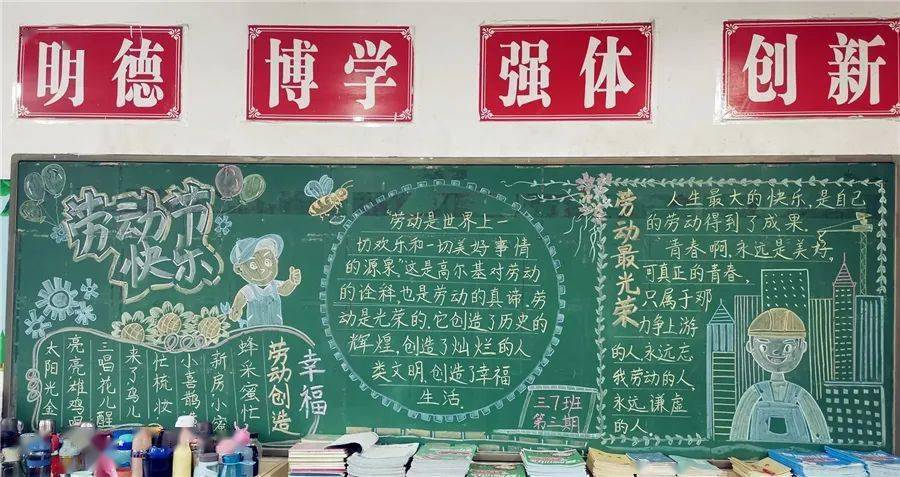 明德
博学
强体
创新
劳动节
快乐
太阳光金
亮亮雄鸡唱
三唱花儿醒
来了鸟儿
忙梳妆
小喜鹊
新房小蜜
蜂采蜜忙
劳动创造
幸福
“劳动是世界上一
切欢乐和一切美好事情
的源泉”这是高尔基对劳动
的诠释,也是劳动的真谛.劳
动是光荣的.它创造了历史的
辉煌,创造了灿烂的人
类文明,创造了幸福
生活
三7班
第三期
劳动最光荣
人生最大的快乐,是自己
的劳动得到了成果.
青春啊,永远是美好,
可真正的青春,
只属于那
力争上游
的人,永远忘
我劳动的人,
永远谦虚
的人.